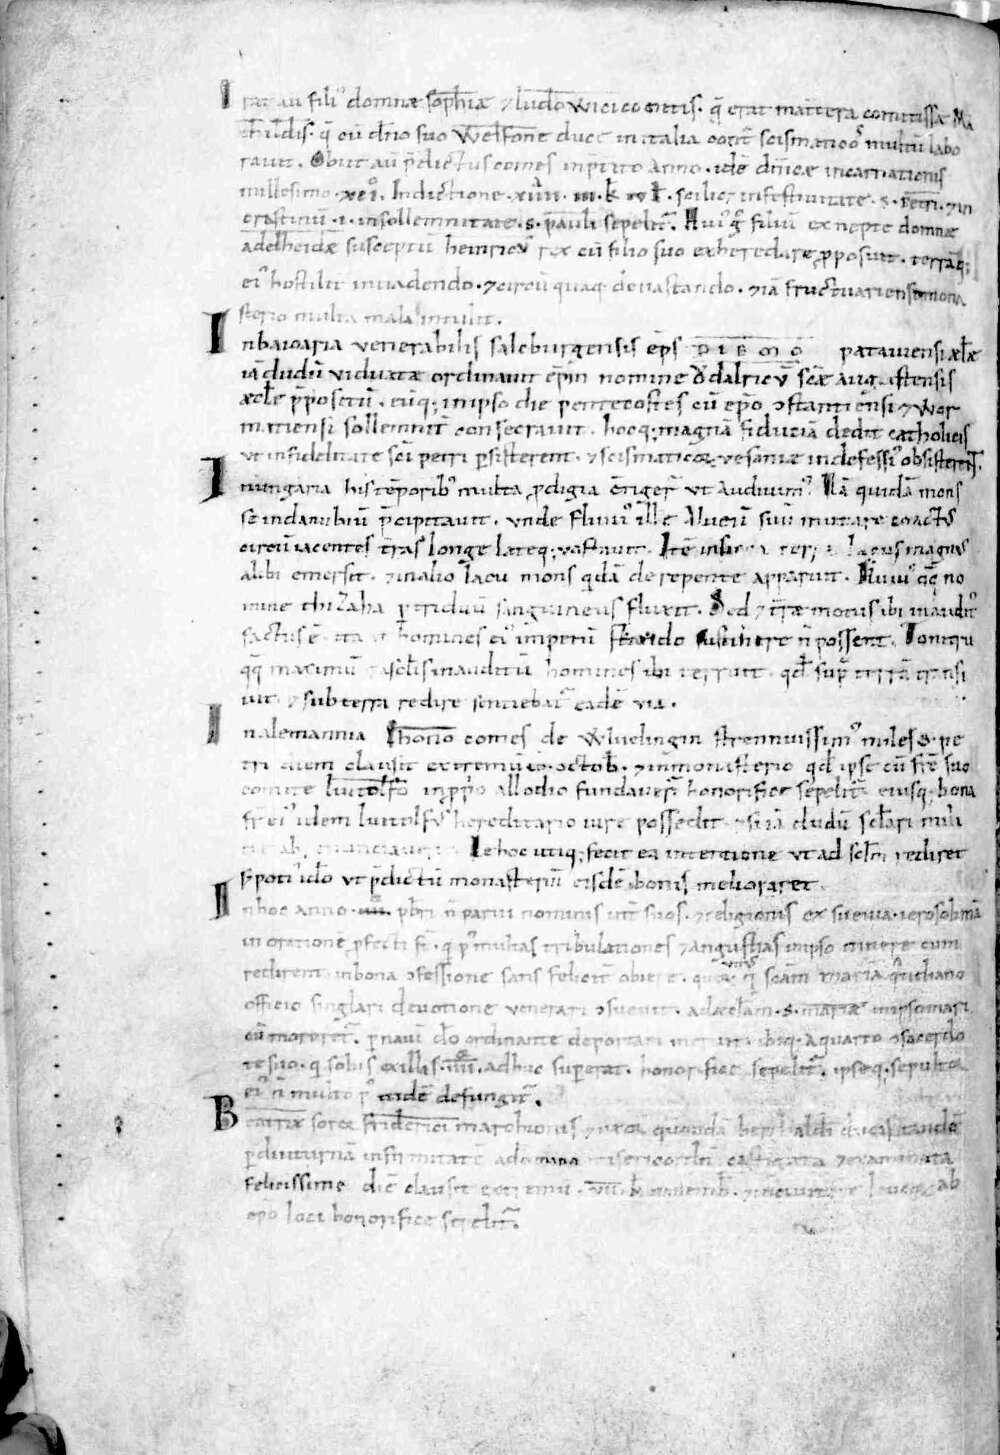 Erat aū fili᷒ domnæ sophiæ ⁊ ludoWici comitis. q̄ erat mat̄tera comitissæ Ma
thildis. q̄ cū dn̄o suo Welfone duce in italia cont̄ scismaticos multū labo
ravit. Obiit aū p̄dictus comes in p̄fato Anno. idē dn̄icæ incarnationis
millesimo. xci. Indictione. xiiii. iii. k̄. iul̄. scilic⁊ in festivitate. s. petri. ⁊ in
crastinū. i. in sollemnitate. s. pauli sepelit̄. Hui᷒ g̊ filiū ex nepte domnæ
adelheidæ susceptū heinric᷒ rex cū filio suo exheredare ꝓposuit. terrāq;
ei᷒ hostilit̄ invadendo. ⁊ circū quaq; devastando. ⁊ iā fructuariensi mona
sterio multa mala intulit.
In baioaria venerabilis salcburgensis ep̄s DIEMO pataviensi æcl̄æ
iā dudū viduatæ ordinavit ep̄m nomine Ödalricū scǣ Aug. istensis
æcl̄æ p̄positū. eūq; in ipso die pentecostes cū ep̄o ɔstantiensi ⁊ Wor
matiensi sollemnit̄ consecravit. hocq; magnā fiduciā dedit catholicis
ut in fidelitate sc̄i petri ꝑsisterent. ⁊ scismaticoꝝ vesaniæ indefessi᷒ obsisterent.
In ungaria his tēporib᷒ multa ꝓdigia ɔtiger̄ ut Audivim᷒. Nā quidā mons
se in danubiū p̄cipitavit. unde fluvi᷒ ille Alveū suū mutare coact᷒
circūiacentes t̄ras longe lateq; vastavit. Itē terra lacus magnus
alibi emersit. ⁊ in alio lacu mons qdā de repente apparuit. Fluvi᷒ qq; no
mine thiZaha ꝑ triduū sanguineus fluxit. Sed ⁊ t̄ræ motus ibi inaudit᷒
factus ē. ita ut homines ei᷒ impetū stando sustinere n̄ possent. Tonitru
qq; maximū ⁊ sclis inauditū homines ibi terruit. qd̄ sup̄ terrā transi
vit. ⁊ sub terra redire sentiebat̄ eadē via.
In alemannia Chono comes de Wluelingin strennuissim᷒ miles. s. pe
tri diem clausit extremū. id. octob̄. ⁊ in monasterio qd̄ ipse cū fr̄e suo
comite Liutolfo in ꝓprio allodio fundaver̄. honorifice sepelit̄. eiusq; bona
fr̄ ei᷒ idem liutolf᷒ hereditario iure possedit. ⁊ si iā dudū sclari mili
tiæ abrenunciaverit. Ie hoc utiq; fecit ea intentione ut ad sclm̄ rediret
s; poti᷒ ido ut p̄dictū monasteriū eisdē bonis melioraret.
In hoc anno. iiii. pb̄ri n̄ parvi nominis int̄ suos. ⁊ religionis ex suevia. ierosolimā
in oratione ꝓfecti st̄. q p᷒ multas tribulationes ⁊ angustias in ipso itinere cum
redirent in bona ɔfessione satis felicit̄ obiere. unus scām mariā cotidiano
officio singlari devotione venerari ɔsuevit. ad æclam. s. mariæ in ipso mari
cū moreret̄. ꝑ navi dō ordinante deportari meruit. ibiq; A quarto ɔsacerdo
te suo. q solus ex illis. iiii. adhuc supererat. honorifice sepelit̄. ipseq; sepulto
ei᷒ n̄ multo p᷒ itidē defungit̄.
Beatrix soror friderici marchionis ⁊ uxor quondā berthaldi ducis tandē
ꝑ diuturnā infirmitatē ad oīa misericordit̄ castigata ⁊ examinata
felicissime diē clausit extremū. vii. k̄. novemb̄. ⁊ in civitate leuca ab
ep̄o loci honorifice sepelit̄.